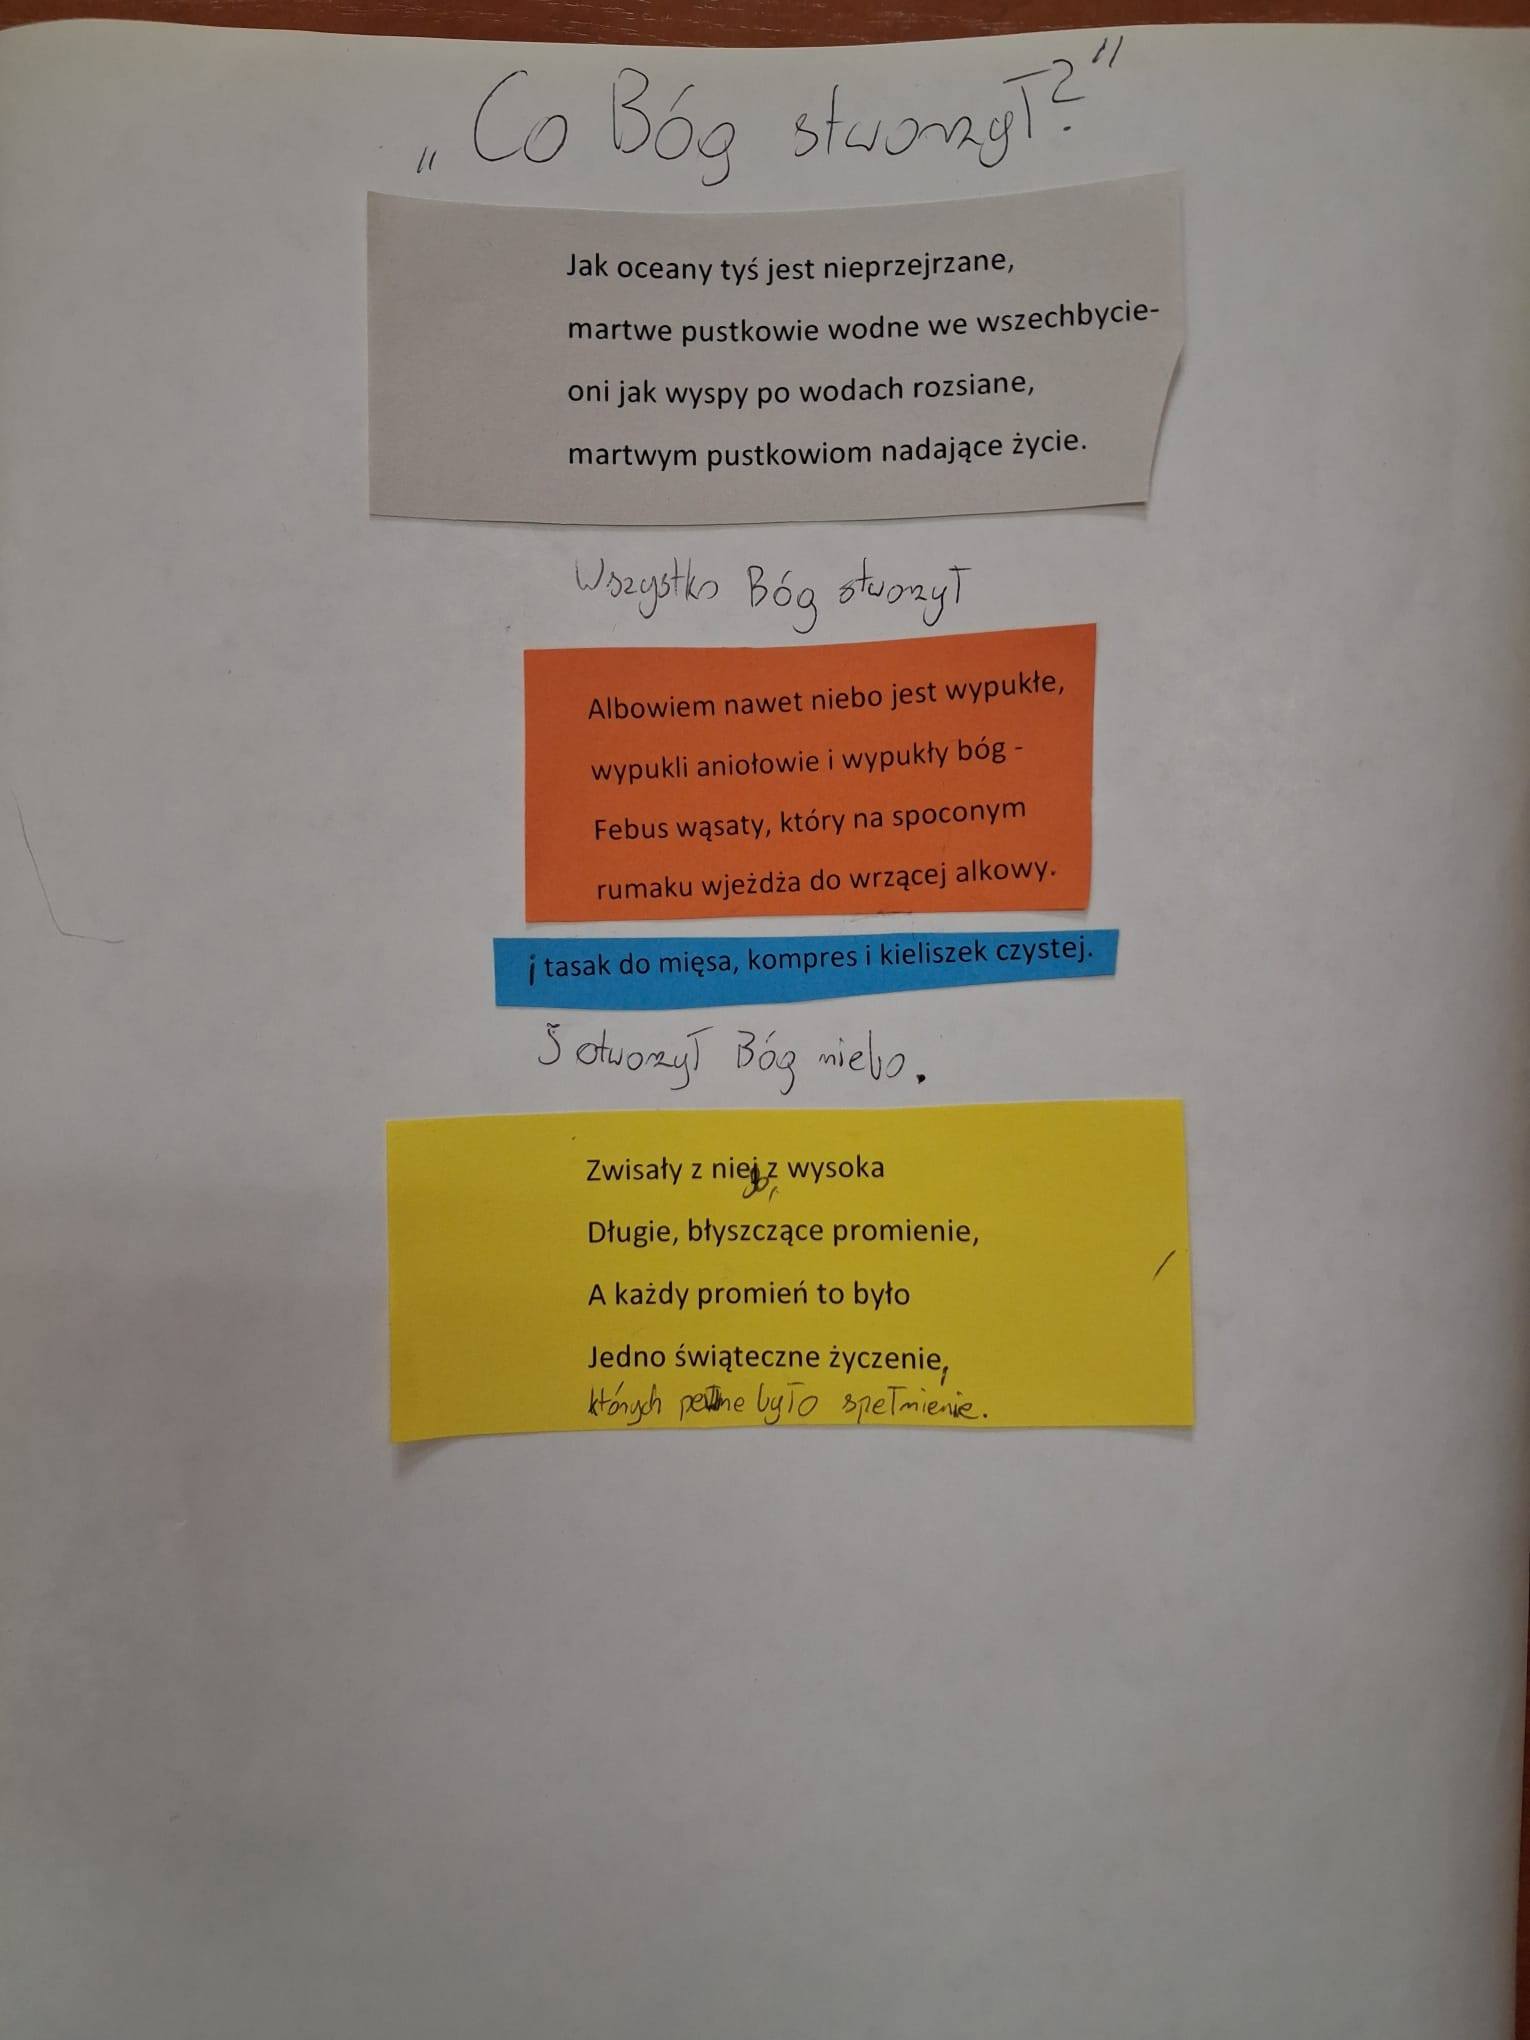 „Co Bóg stworzył?"
Jak oceany tyś jest nieprzejrzane,
martwe pustkowie wodne we wszechbycie-
oni jak wyspy po wodach rozsiane,
martwym pustkowiom nadające życie.
Wszystko Bóg stworzył
Albowiem nawet niebo jest wypukłe,
wypukli aniołowie i wypukły bóg -
Febus wąsaty, który na spoconym
rumaku wjeżdża do wrzącej alkowy.
i tasak do mięsa, kompres i kieliszek czystej.
Stworzył Bóg niebo.
Zwisały z niego, z wysoka
Długie, błyszczące promienie,
A każdy promień to było
Jedno świąteczne życzenie,
których pełne było spełnienie.